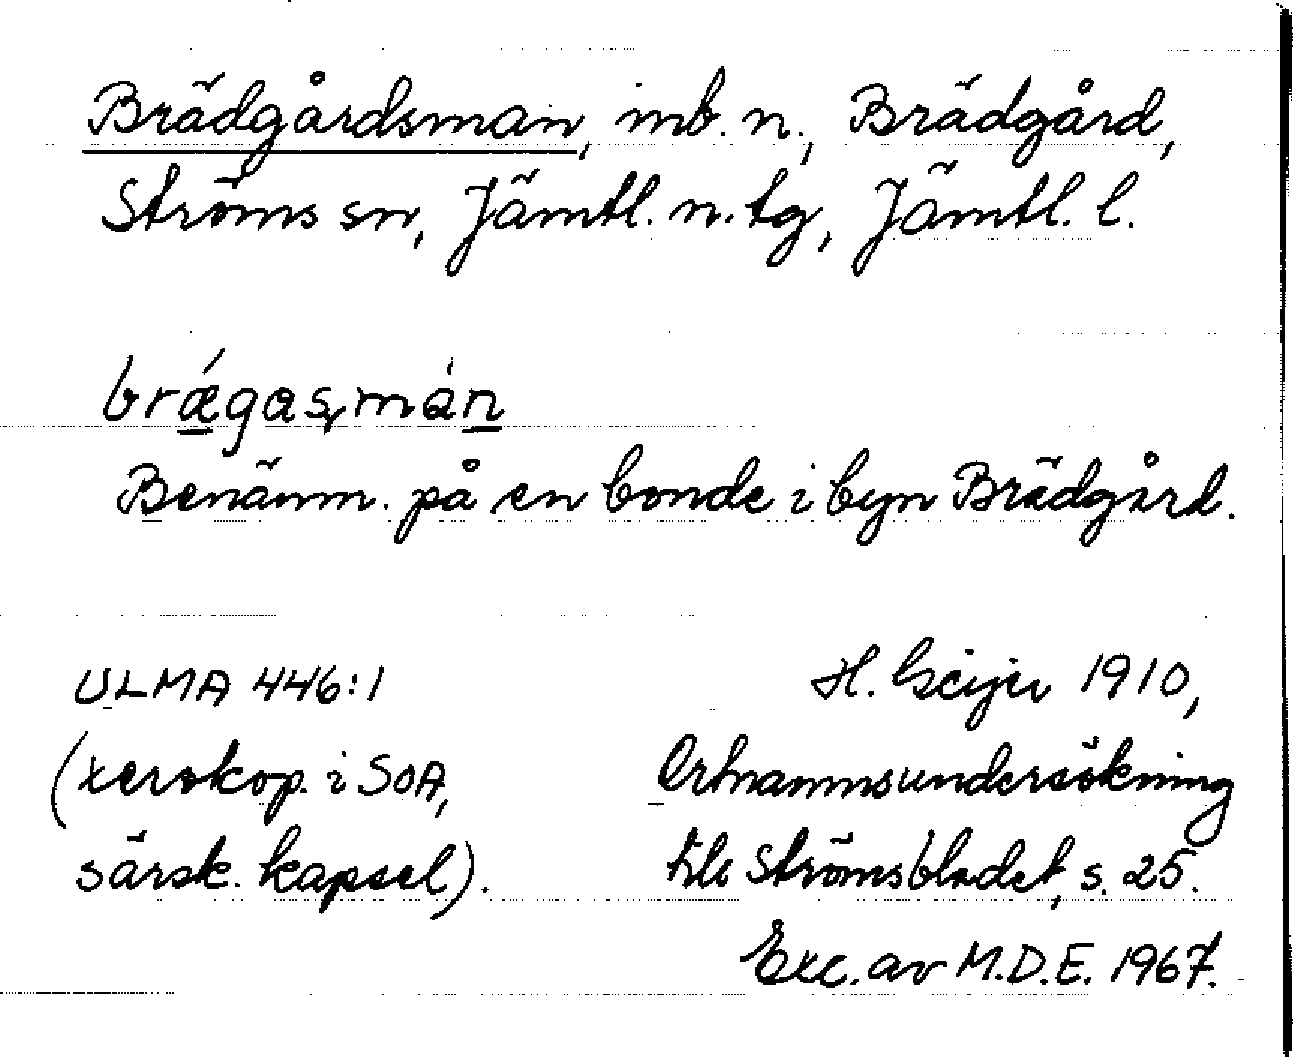 Brädgårdsman, inb. n., Brädgård,
Ströms sn, Jämtl. n. tg, Jämtl. l.
brǽgasmán
Benämn. på en bonde i byn Brädgård.
ULMA 446:1
(xerokop. i SOA,
särsk. kapsel).
H. Geijer 1910,
Ortnamnsundersökning
till Strömsbladet, s. 25.
Exc. av M.D.E. 1967.